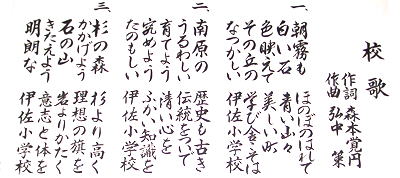 校歌
作詞 森本覚円
作曲 弘中 策
一、朝霧も ほのぼのはれて
白い石 青い山々
色映えて 美しい町
その丘の 学び舎こそは
なつかしい 伊佐小学校
二、南原の 歴史も古き
うるわしい 伝統をついで
育てよう 清い心を
究めよう ふかい知識を
たのもしい 伊佐小学校
三、杉の森 杉より高く
かかげよう 理想の旗を
石の山 岩よりかたく
きたえよう 意志と体を
明朗な 伊佐小学校